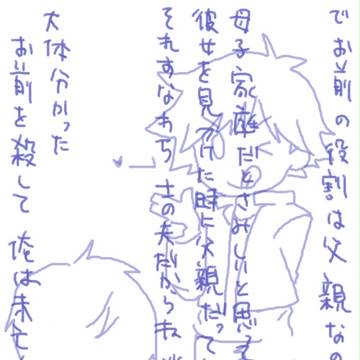 でお前の役割は父親なの
母子家庭だとさみしいと思う
彼女を見つけた時に父親だって
それすなわち 士の夫だからね
大体分かった
お前を殺して 俺は未亡